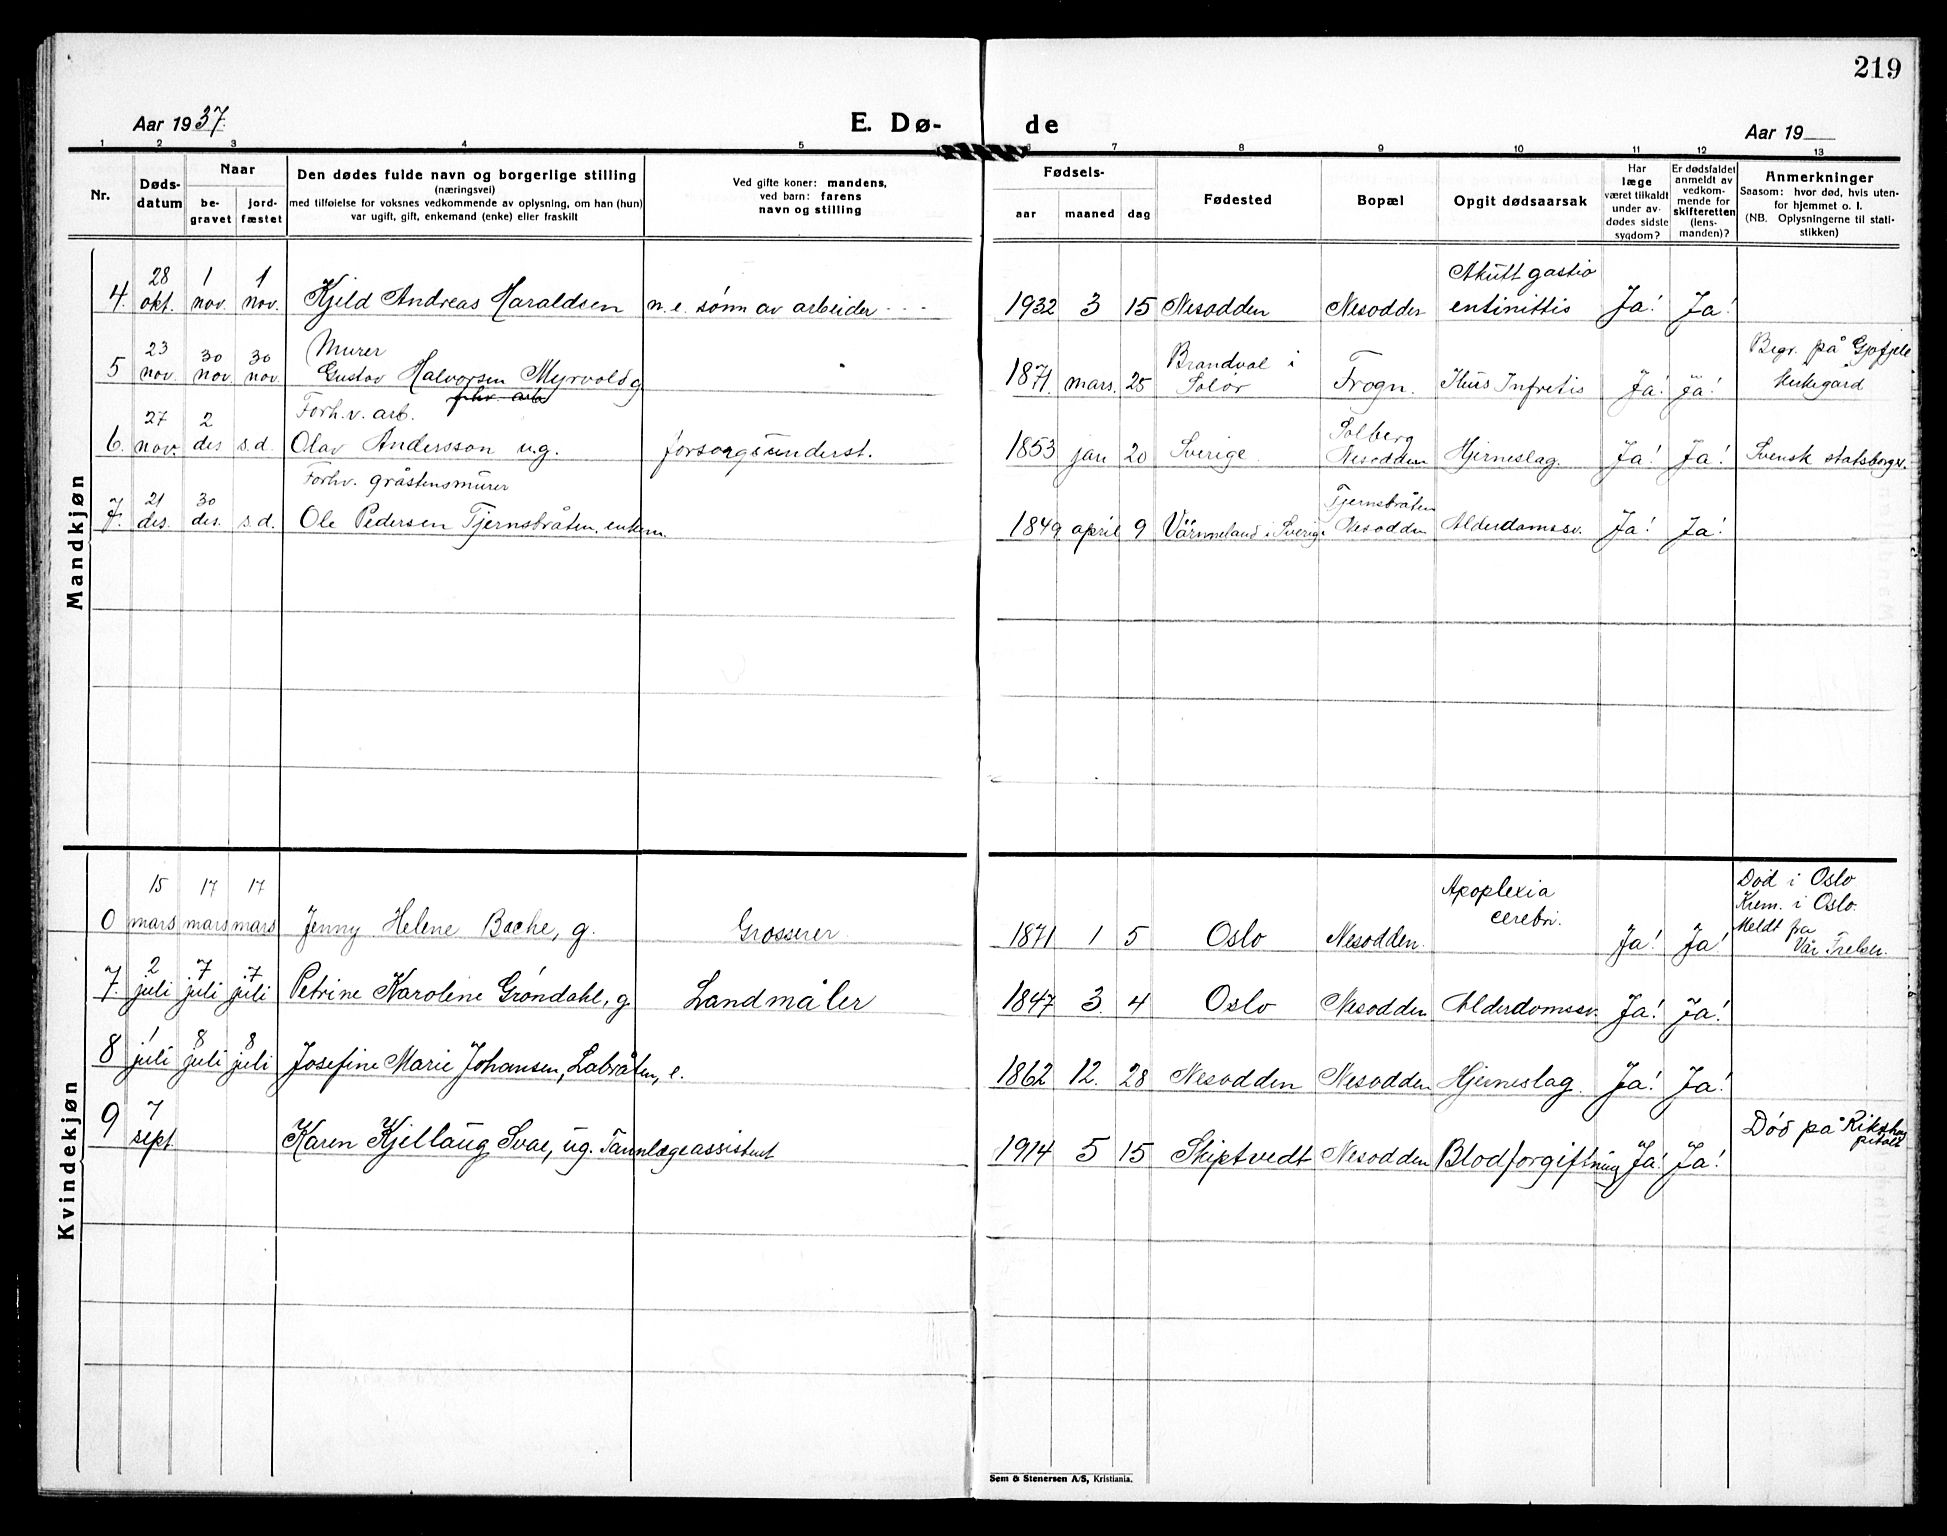 219
Aar 1937.
E. Dø-
de
Aar 19
1 2 3 4 5 6 7 8 9 10 11 12 13
Nr.
Døds-
datum
Naar
be-
gravet
jord-
fæstet
Den dødes fulde navn og borgerlige stilling
(næringsvei)
med tilføielse for voksnes vedkommende av oplysning, om han (hun)
var ugift, gift, enkemand (enke) eller fraskilt
Ved gifte koner: mandens,
ved barn: farens
navn og stilling
Fødsels-
aar maaned dag
Fødested
Bopæl
Opgit dødsaarsak
Har
læge
været tilkaldt
under av-
dødes sidste
sygdom?
Er dødsfaldet
anmeldt av
vedkom-
mende for
skifteretten
(lens-
manden)?
Anmerkninger
Saasom: hvor død, hvis uten-
for hjemmet o. l.
(NB. Oplysningerne til stati-
stikken)
Mandkjøn
28 1 1 Akutt gastio
4. okt. nov. nov. Kjeld Andreas Haraldsen n.e. sønn av arbeider 1932 3 15 Nesodden Nesodden entinittis Ja! Ja!
23 30 30 Murer Brandval i Begr. på
5 nov. nov. nov. Gustav Halvorsen Myrvold g 1871 mars. 25 Solør Frogn. Ja! Ja! kirkegård
forhv. arb
27 2 Forhv. arb. Solberg
6. nov. des s.d. Olav Andersson ug. forsorgsunderst. 1853 jan 20 Sverige. Nesodden Hjerneslag. Ja! Ja! Svensk statsborger.
21 30 Forhv. gråstensmurer Tjernsbråten
7. des. des. s.d. Ole Pedersen Tjernsbråten, enkem. 1849 april 9 Värmeland i Sverige Nesodden Alderdomssv. Ja! Ja!
Kvindekjøn
15 17 17 Apoplexia Død i Oslo
Krem. i Oslo.
0 mars mars mars Jenny Helene Bache, g. Grosserer 1871 1 5 Oslo Nesodden. cerebri. Ja! Ja! Meldt fra
Vår Frelser.
2 7 7
7. juli juli juli Petrine Karoline Grøndahl, g. Landmåler 1847 3. 4 Oslo Nesodden Alderdomssv. Ja! Ja!
1 8 8
8 juli juli juli Josefine Marie Johansen, Labråten, e. 1862 12. 28 Nesodden Nesodden Hjerneslag. Ja! Ja!
7 Død på Rikshos
pitalet
9 sept. Karen Kjellaug Svae, ug. Tannlegeassistent 1914 5 15 Skiptvedt Nesodden Blodforgiftning Ja! Ja!
Sem & Stenersen A/S, Kristiania.